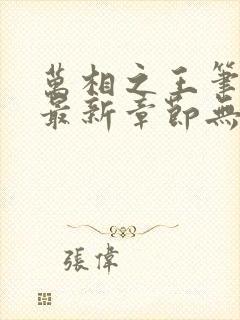 萬相之王筆
最新章節無
張偉